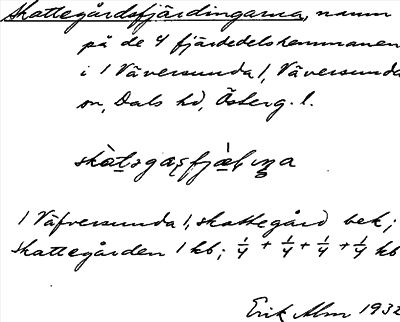 Skattegårdsfjärdingarna, namn
på de 4 fjärdedelshemmanen
i 1 Väversunda 1, Väversunda
sn, Dals hd, Österg. l.
1 Väfversunda 1, skattegård bek;
skattegården 1 kb; 1/4 + 1/4 + 1/4 + 1/4 kb
Erik Alm 1932